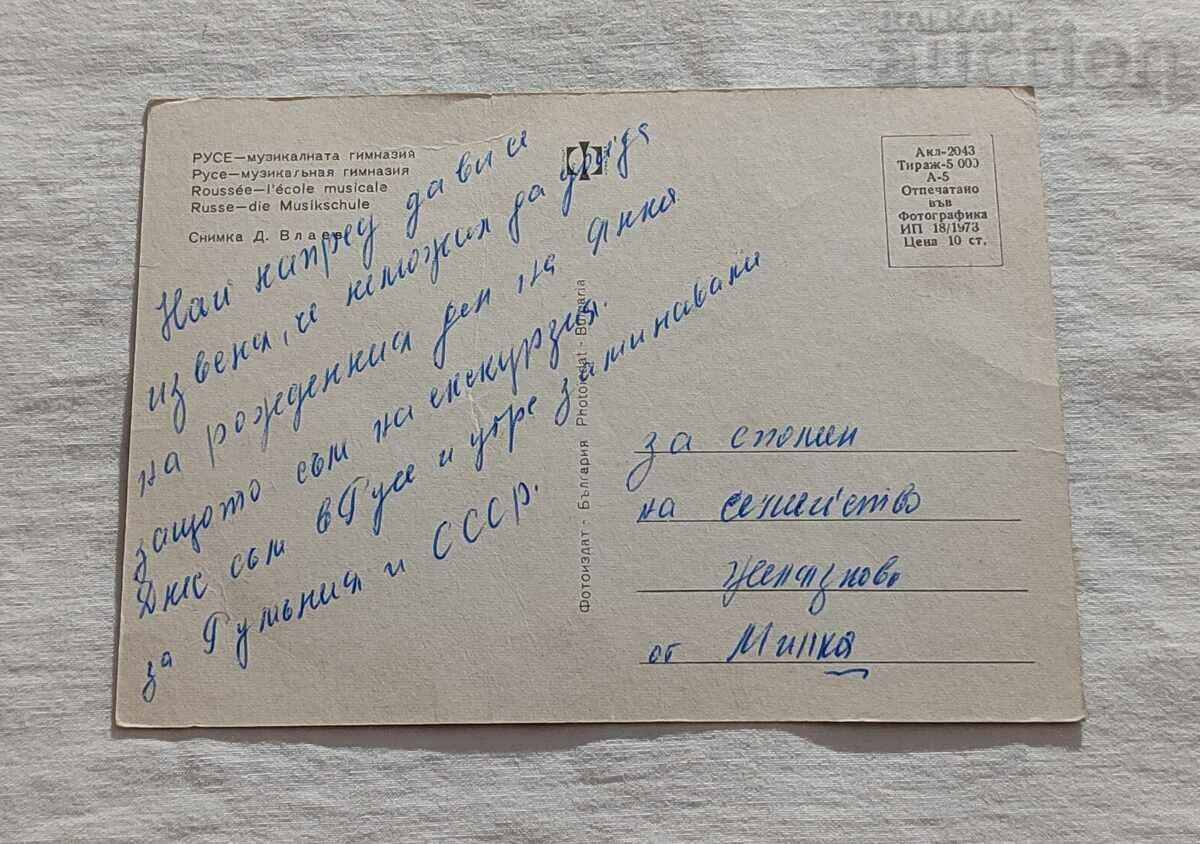 BALKAN
auction
РУСЕ—музикалната гимназия
Русе—музикальная гимназия
Roussée—l'école musicale
Russe—die Musikschule
Снимка Д. Влаев
Най напред да ви се
извеня, че неможил да дойда
на рожденния ден на Янка
защото съм на екскурзия.
Днес съм в Русе и утре заминавами
за Румъния и СССР.
Фотоиздат - България Photoizdat - Bulgaria
Акл-2043
Тираж-5 000
А-5
Отпечатано
във
Фотографика
ИП 18/1973
Цена 10 ст.
за спомен
на семейство
Желязкови
от Минка